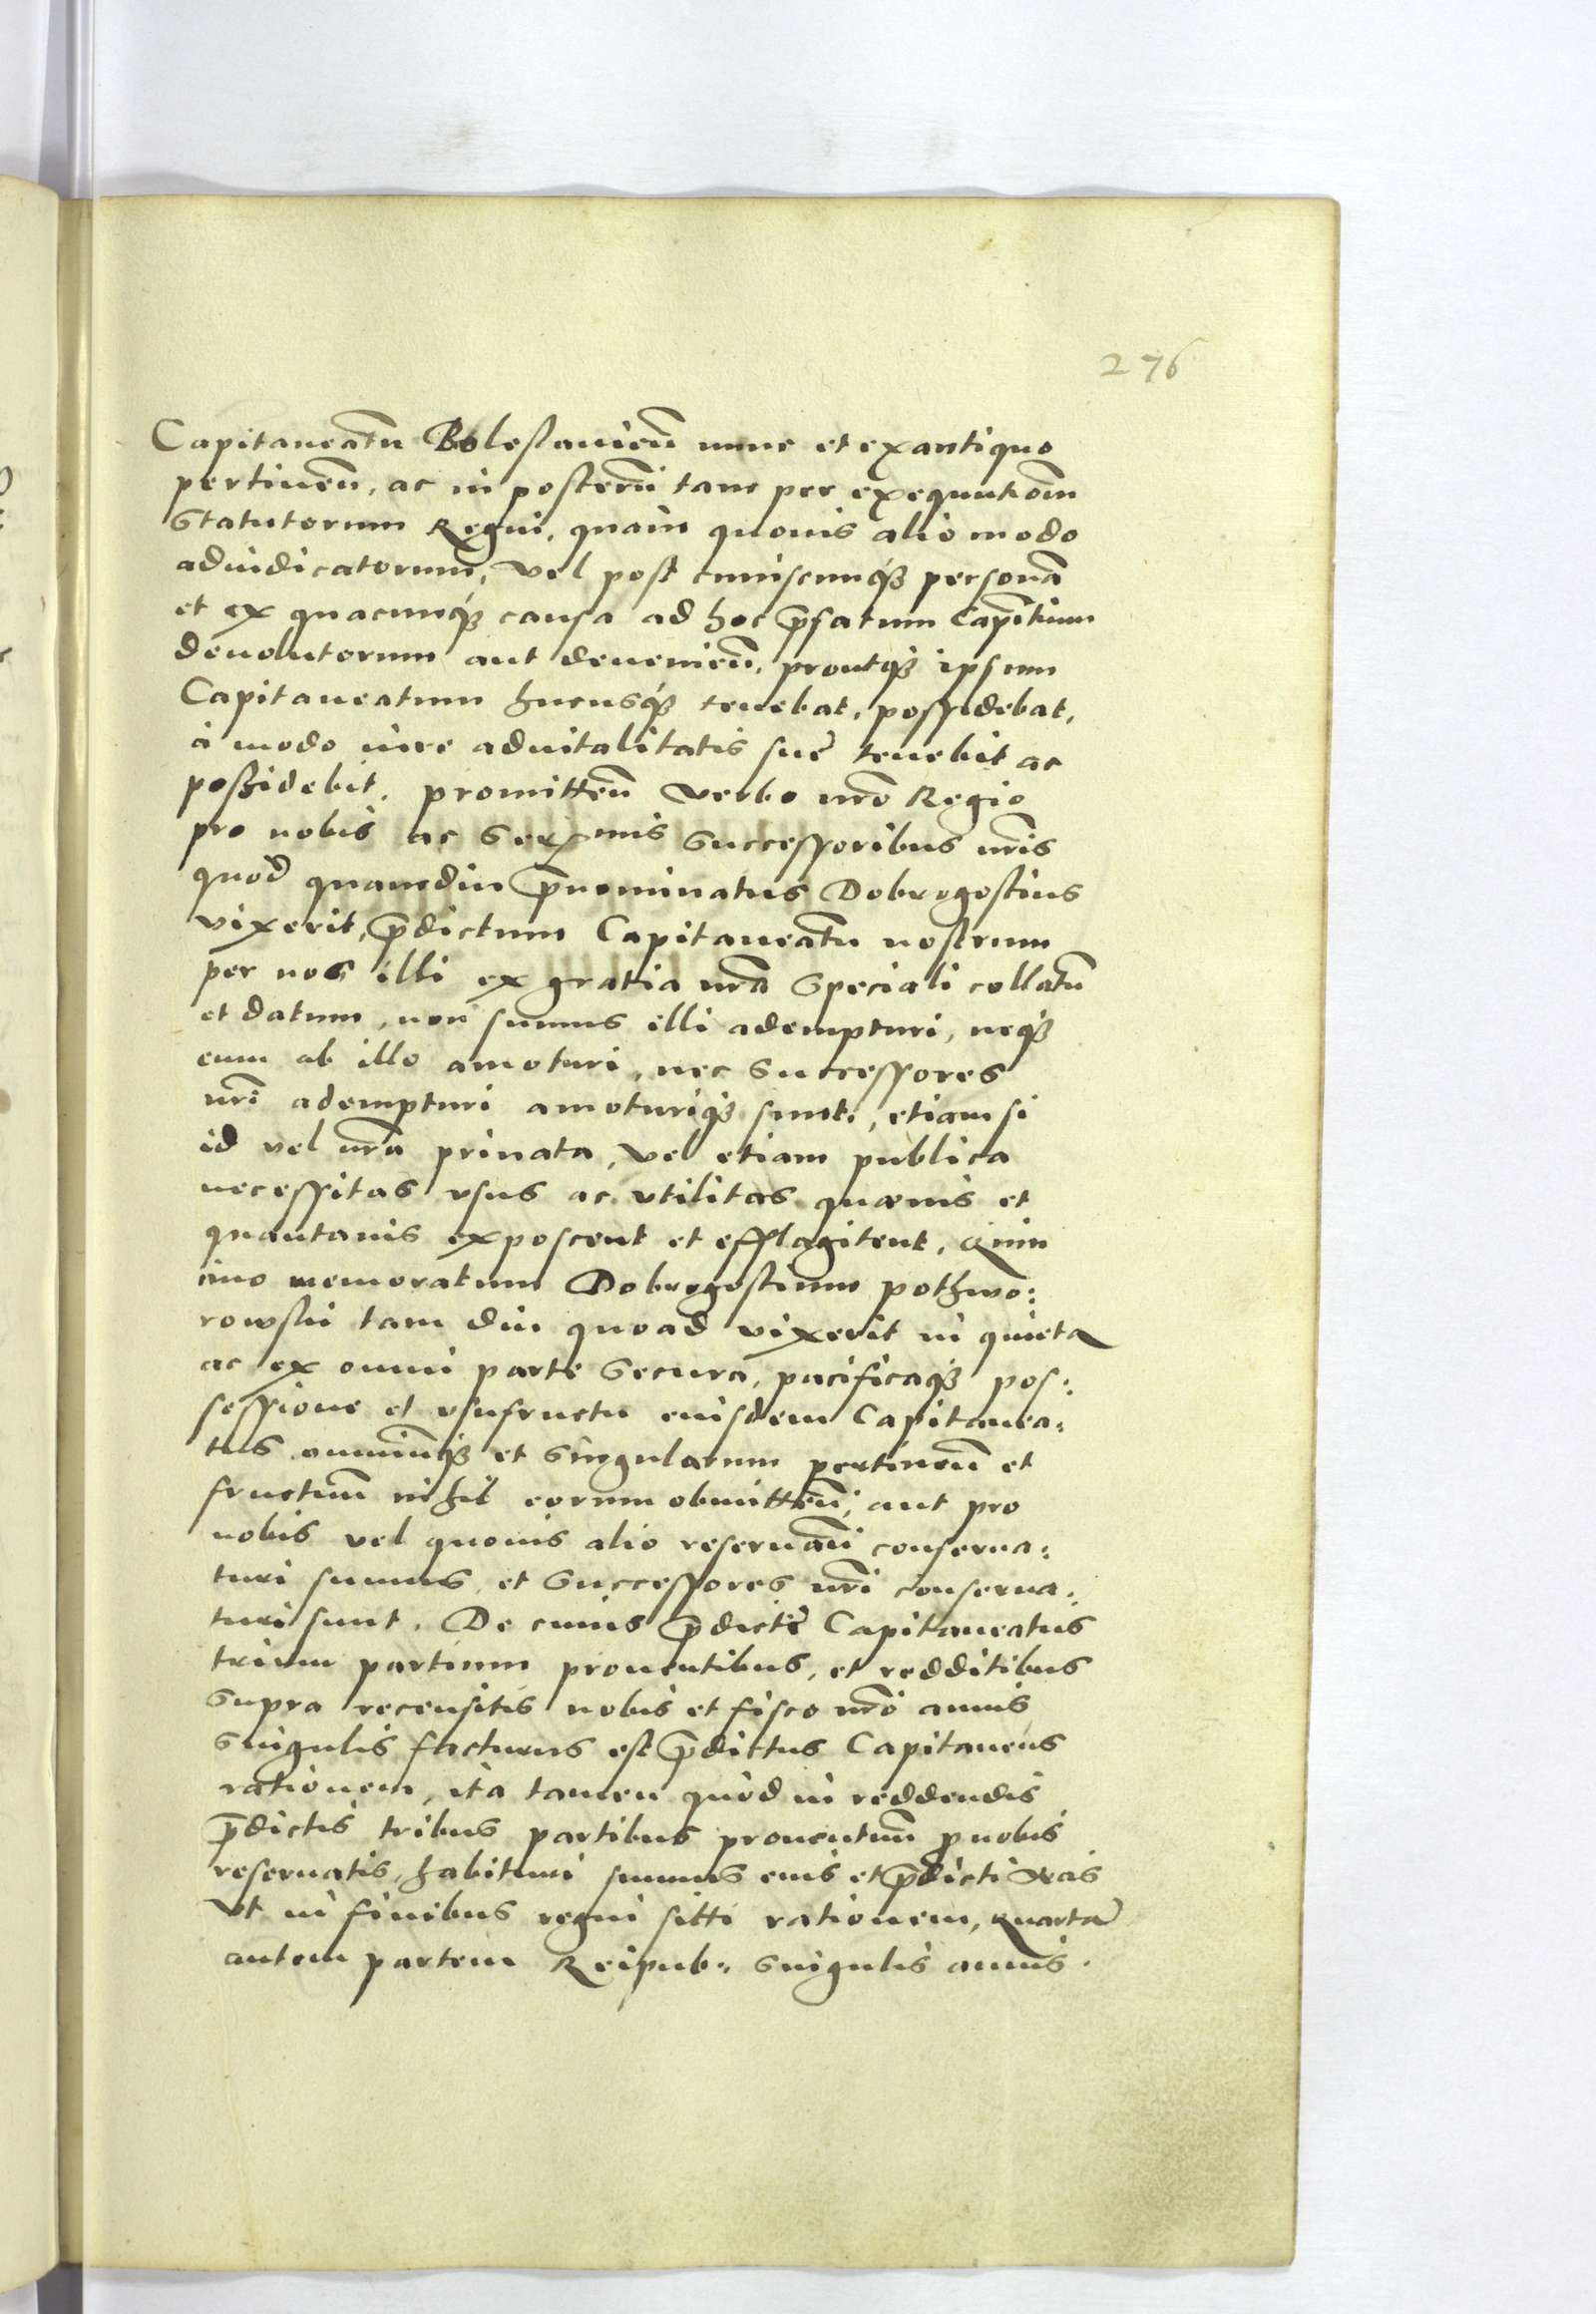 276
Capitaneatu Bolestauien̄ nunc et ex antiquo
pertinen̄, ac in posterū tam per exequutiōm
Statutorum Regni, quam quouis alio modo
adiudicatorum, vel post cuiuscunq̨ personā
et ex quacunq̨ causa ad hoc p̄fatum Capn̄tium
deuolutorum aut deuenien̄, proutq̨ ipsum
Capitaneatum hucusq̨ tenebat, possidebat,
à modo iure aduitalitatis suę tenebit ac
possidebit. promitten̄ verbo nr̄o Regio
pro nobis ac Serx̄mis Successoribus nr̄is
quod quamdiu p̄nominatus Dobrogostius
vixerit, p̄dictum Capitaneatū nostrum
per nos illi ex gratia nr̄a Speciali collatū
et datum, non sumus illi adempturi, neq̨
eum ab illo amoturi, nec Successores
nr̄i adempturi amoturiq̨ sunt, etiamsi
id vel nr̄a priuata, vel etiam publica
necessitas vsus ac vtilitas quæuis et
quantauis exposcent et efflagitent, Quin
imo memoratum Dobrogostium pothwo:
rowski tam diu quoad vixerit in quieta
ac ex omni parte Secura, pacificaq̨ pos:
sessione et vsufructu eiusdem Capitanea:
tus omniūq̨ et Singularum pertinen̄ et
fructuum nihil eorum obmitten̄, aut pro
nobis vel quouis alio reseruan̄ conserua:
turi sumus, et Successores nr̄i conserua:
turi sunt. De cuius p̄dicti Capitaneatus
trium partium prouentibus, et redditibus
Supra recensitis nobis et fisco nr̄o annis
Singulis facturus est p̄dictus Capitaneus
rationem, ita tamen quòd in reddendis
p̄dictis tribus partibus prouentuū p nobis
reseruatis, habituri sumus eius et p̄dicti
Vt in finibus regni sitti rationem, Quartā
autem partem Reipub: Singulis annis.